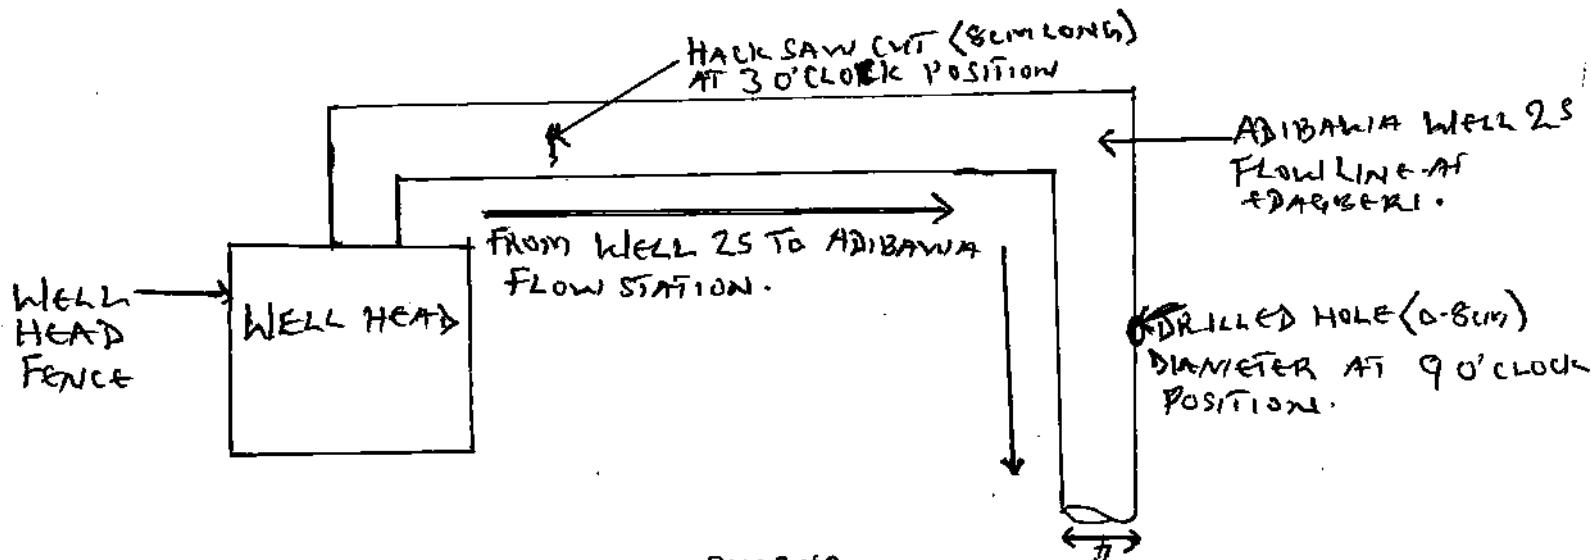 HACK SAW CUT (8CM LONG)
AT 3 O'CLOCK POSITION
ADIBAWA WELL 25
FLOWLINE AT
EDAGBERI.
FROM WELL 25 TO ADIBAWA
FLOW STATION.
WELL
HEAD
FENCE
WELL HEAD
DRILLED HOLE (0.8cm)
DIAMETER AT 9 O'CLOCK
POSITION.